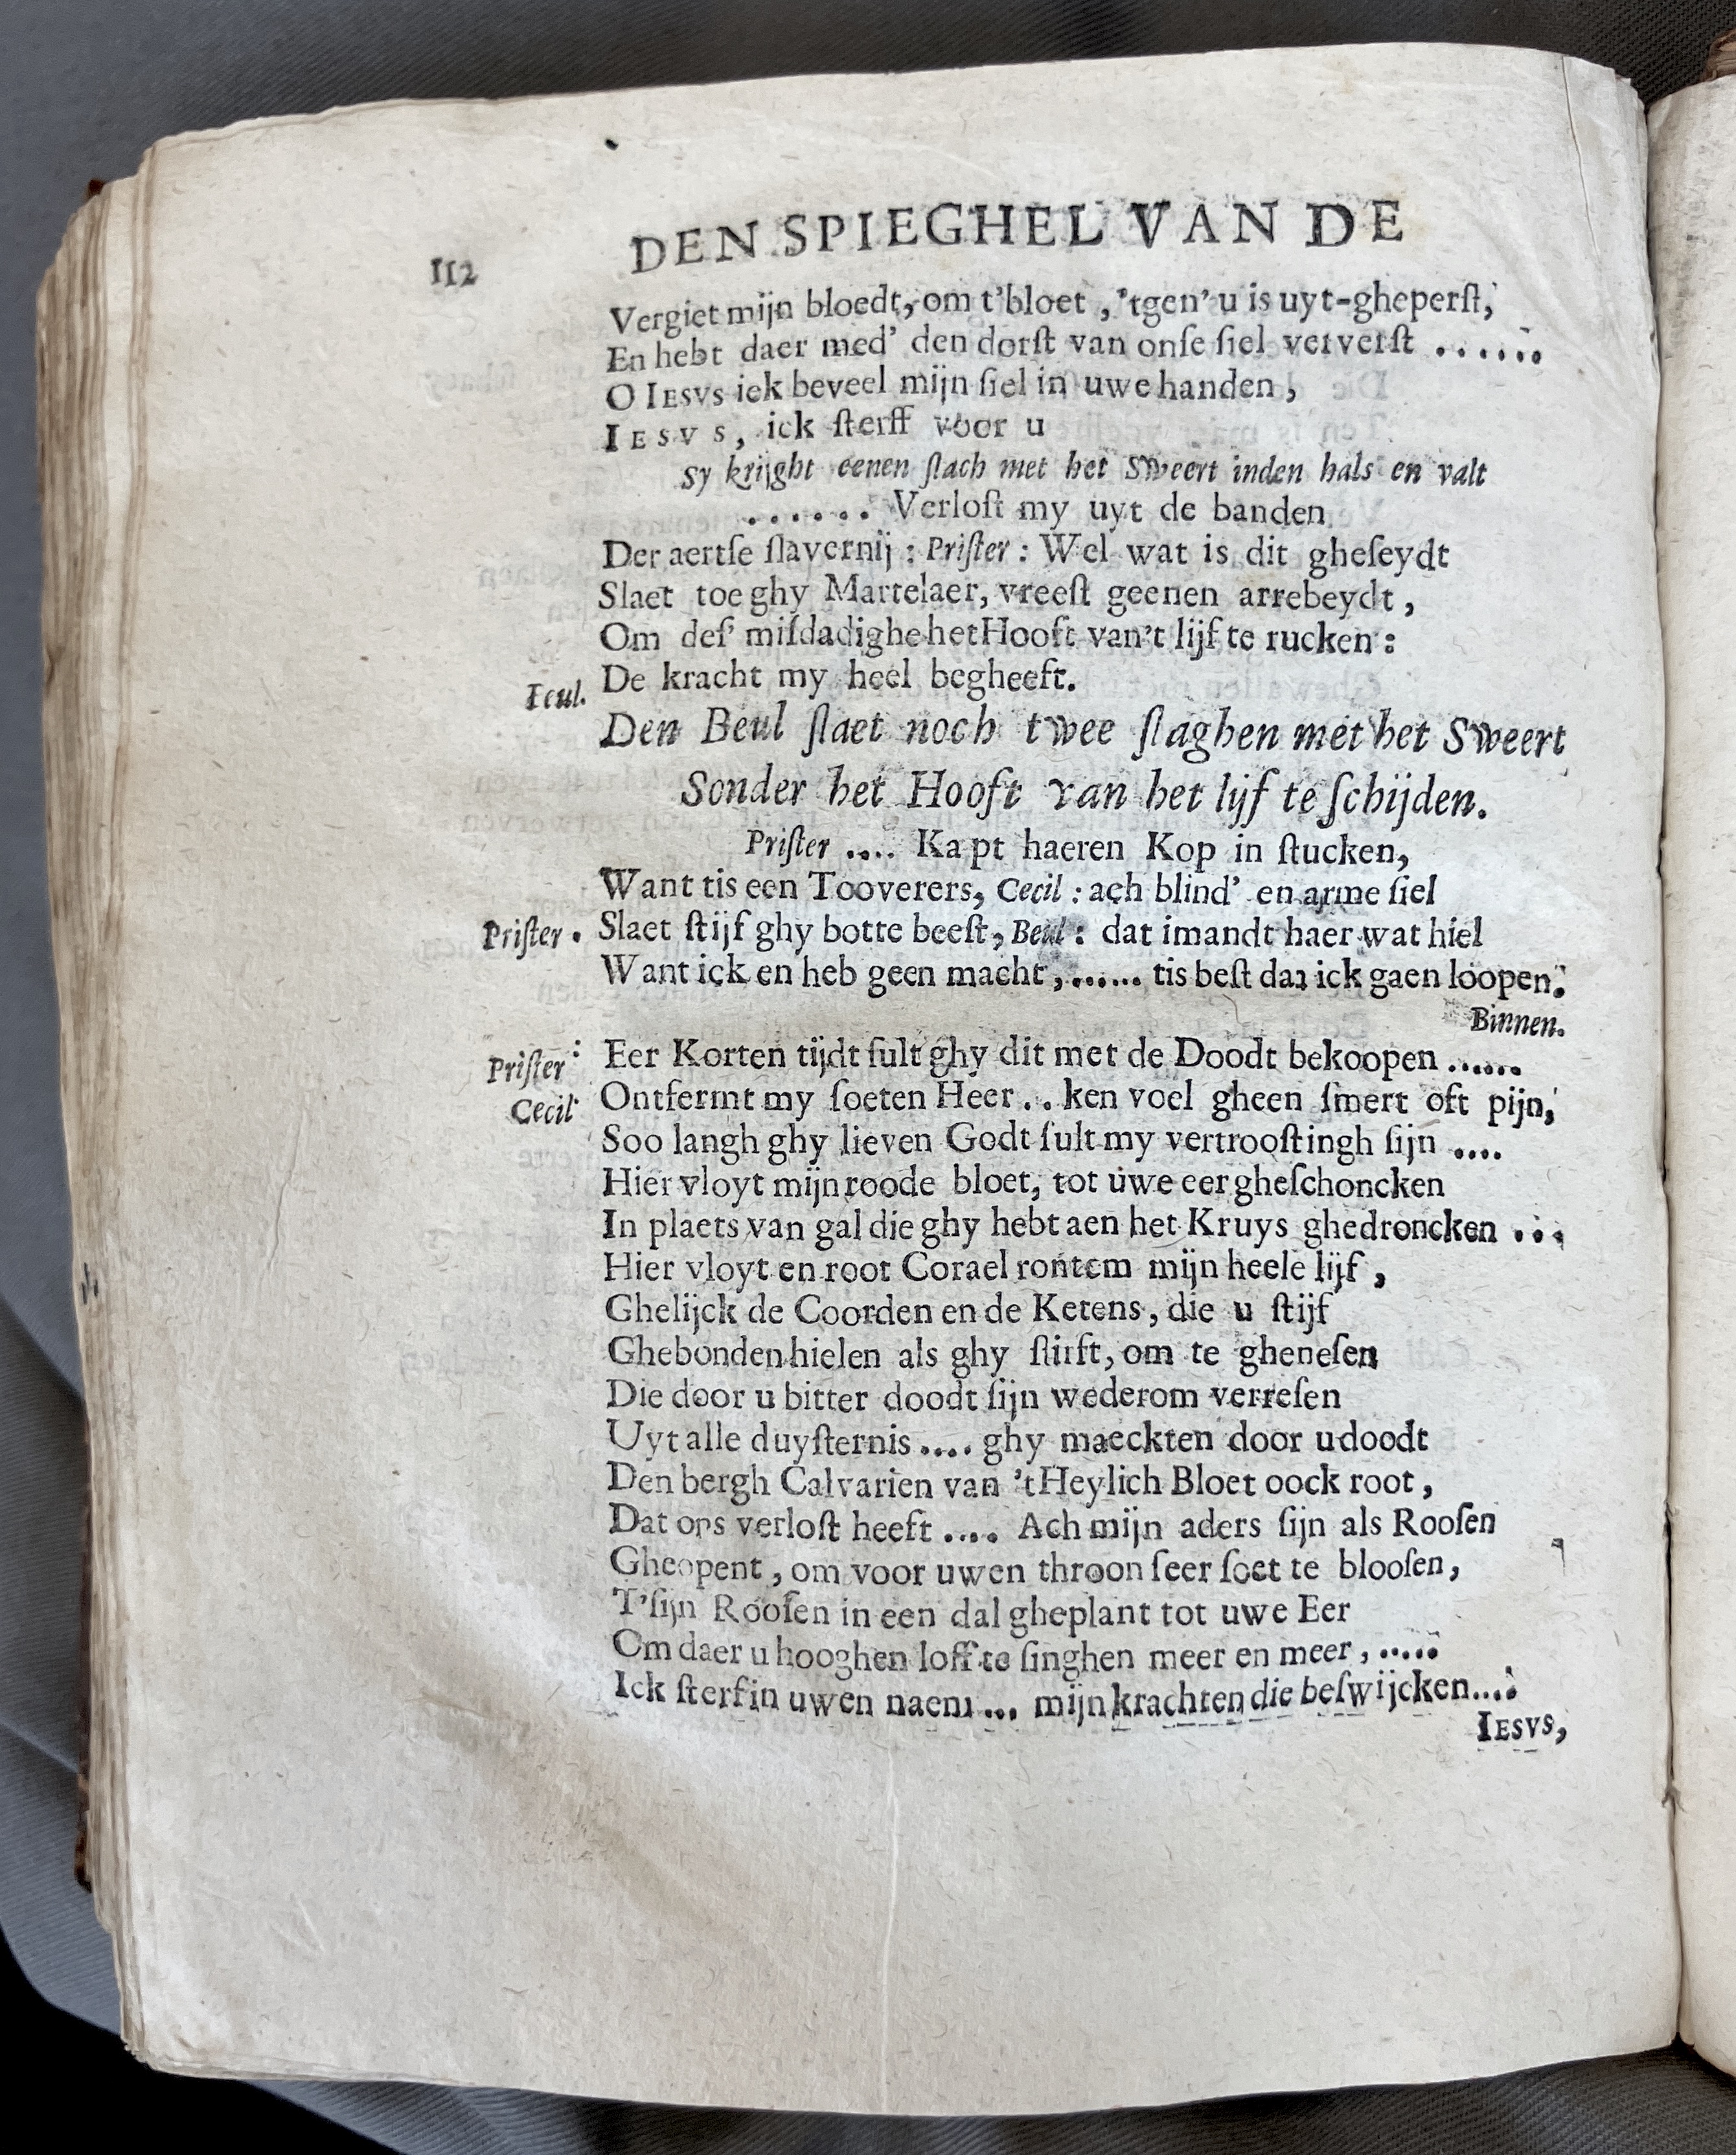 112
DEN SPIEGHEL VAN DE
Vergiet mijn bloedt, om t'bloet, 'tgen' u is uyt-gheperſt,
En hebt daer med' den dorſt van onſe ſiel ververſt ......
O IESVS iek beveel mijn ſiel in uwe handen,
IESVS, ick ſterff voor u
Sy krijght eenen ſlach met het Sweert inden hals en valt
...... Verloſt my uyt de banden
Der aertſe ſlavernij : Priſter : Wel wat is dit gheſeydt
Slaet toe ghy Martelaer, vreeſt geenen arrebeydt,
Om deſ' miſdadighe het Hooft van't lijf te rucken :
Ieul. De kracht my heel begheeft.
Den Beul ſlaet noch twee ſlaghen met het Sweert
Sonder het Hooft van het lijf te ſchijden.
Priſter .... Kapt haeren Kop in ſtucken,
Want tis een Tooverers, Cecil : ach blind' en arme ſiel
Priſter. Slaet ſtijf ghy botte beeſt, Beul : dat imandt haer wat hiel
Want ick en heb geen macht, ...... tis beſt dat ick gaen loopen.
Binnen.
Priſter : Eer Korten tijdt ſult ghy dit met de Doodt bekoopen ......
Cecil Ontfermt my ſoeten Heer .. ken voel gheen ſmert oft pijn,
Soo langh ghy lieven Godt ſult my vertrooſtingh ſijn ....
Hier vloyt mijn roode bloet, tot uwe eer gheſchoncken
In plaets van gal die ghy hebt aen het Kruys ghedroncken ...
Hier vloyt en root Corael rontom mijn heele lijf,
Ghelijck de Coorden en de Ketens, die u ſtijf
Ghebonden hielen als ghy ſtirft, om te gheneſen
Die door u bitter doodt ſijn wederom verreſen
Uyt alle duyſternis .... ghy maeckten door u doodt
Den bergh Calvarien van 't Heylich Bloet oock root,
Dat ons verloſt heeft .... Ach mijn aders ſijn als Rooſen
Gheopent, om voor uwen throon ſeer ſoet te blooſen,
T'ſijn Rooſen in een dal gheplant tot uwe Eer
Om daer u hooghen loff te ſinghen meer en meer, .....
Ick ſterf in uwen naem ... mijn krachten die beſwijcken....
IESVS,